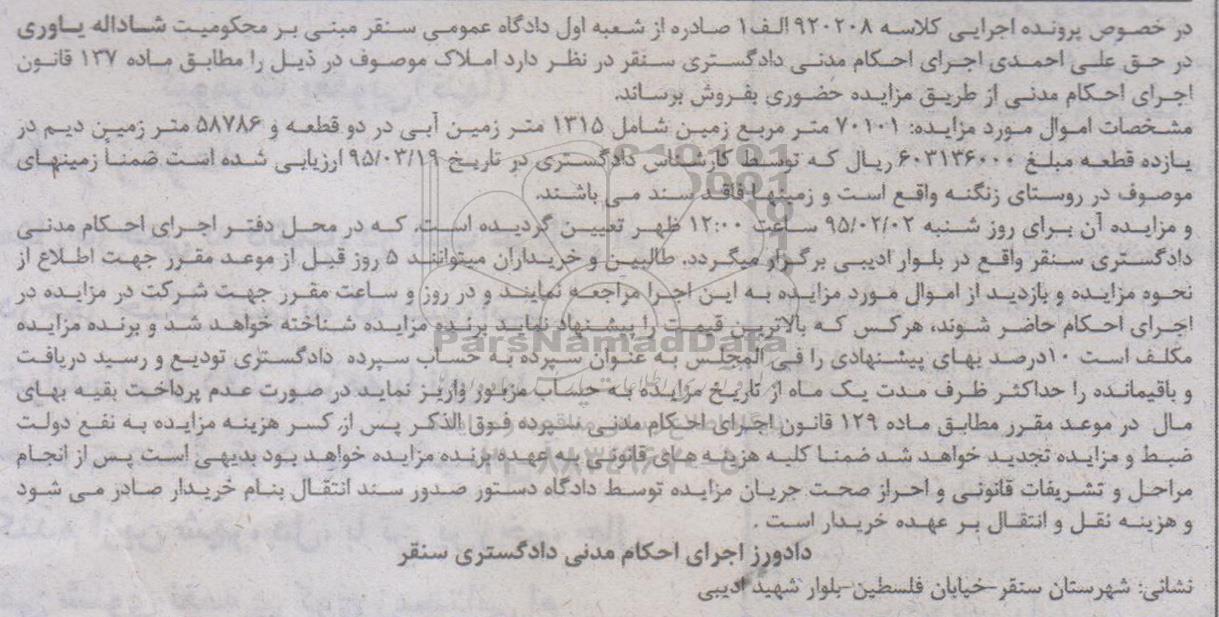 در خصوص پرونده اجرایی کلاسه ۹۲۰۲۰۸ الف۱ صادره از شعبه اول دادگاه عمومی سنقر مبنی بر محکومیت شاداله یاوری
در حق علی احمدی اجرای احکام مدنی دادگستری سنقر در نظر دارد املاک موصوف در ذیل را مطابق ماده ۱۳۷ قانون
اجرای احکام مدنی از طریق مزایده حضوری بفروش برساند.
مشخصات اموال مورد مزایده: ۷۰۱۰۱ متر مربع زمین شامل ۱۳۱۵ متر زمین آبی در دو قطعه و ۵۸۷۸۶ متر زمین دیم در
یازده قطعه مبلغ ۶۰۳۱۳۶۰۰۰ ریال که توسط کارشناس دادگستری در تاریخ ۹۵/۰۳/۱۹ ارزیابی شده است ضمناً زمینهای
موصوف در روستای زنگنه واقع است و زمینها فاقد سند می باشند.
و مزایده آن برای روز شنبه ۹۵/۰۲/۰۲ ساعت ۱۲:۰۰ ظهر تعیین گردیده است. که در محل دفتر اجرای احکام مدنی
دادگستری سنقر واقع در بلوار ادیبی برگزار میگردد. طالبین و خریداران میتوانند ۵ روز قبل از موعد مقرر جهت اطلاع از
نحوه مزایده و بازدید از اموال مورد مزایده به این اجرا مراجعه نمایند و در روز و ساعت مقرر جهت شرکت در مزایده در
اجرای احکام حاضر شوند، هرکس که بالاترین قیمت را پیشنهاد نماید برنده مزایده شناخته خواهد شد و برنده مزایده
مکلف است ۱۰درصد بهای پیشنهادی را فی المجلس به عنوان سپرده به حساب سپرده دادگستری تودیع و رسید دریافت
و باقیمانده را حداکثر ظرف مدت یک ماه از تاریخ مزایده به حساب مزبور واریز نماید در صورت عدم پرداخت بقیه بهای
مال در موعد مقرر مطابق ماده ۱۲۹ قانون اجرای احکام مدنی سپرده فوق الذکر پس از کسر هزینه مزایده به نفع دولت
ضبط و مزایده تجدید خواهد شد ضمنا کلیه هزینه های قانونی به عهده برنده مزایده خواهد بود بدیهی است پس از انجام
مراحل و تشریفات قانونی و احراز صحت جریان مزایده توسط دادگاه دستور صدور سند انتقال بنام خریدار صادر می شود
و هزینه نقل و انتقال بر عهده خریدار است .
دادورز اجرای احکام مدنی دادگستری سنقر
نشانی: شهرستان سنقر-خیابان فلسطین-بلوار شهید ادیبی
ParsNamadData